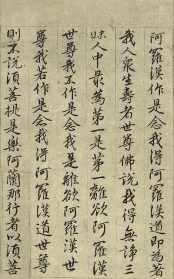 阿羅漢作是念我得阿羅漢道即為著
我人衆生壽者世尊佛說我得無諍三
昧人中最為第一是第一離欲阿羅漢
世尊我不作是念我是離欲阿羅漢世
尊我若作是念我得阿羅漢道世尊
則不說須菩提是樂阿蘭那行者以須菩